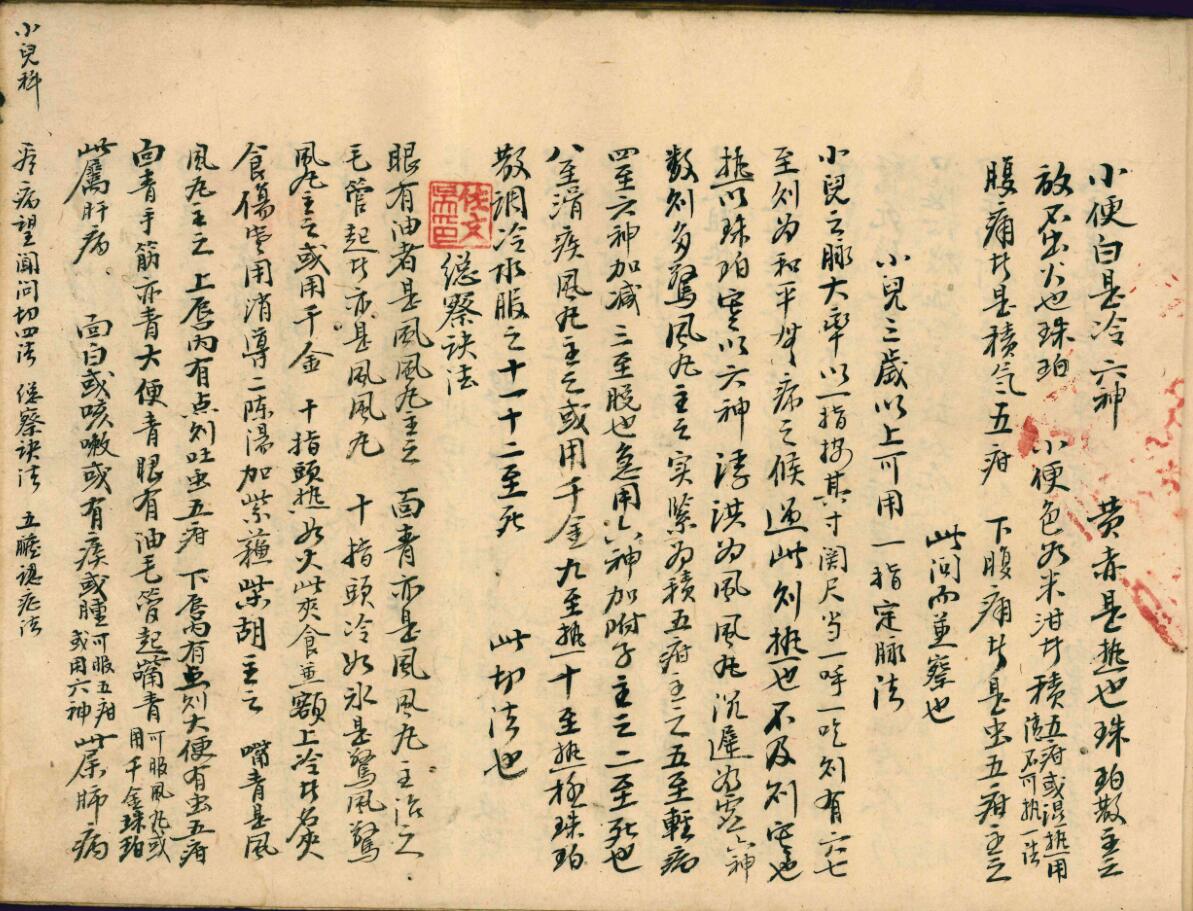 小便白是冷六神　黄赤是热也珠珀散主之
放不出火也珠珀　小便色如米泔者积五疳或湿热用
法不可执一法
腹痛者是积气五疳　下腹痛者是虫五疳主之
此问而兼察也
小兒三歲以上可用一指定脉法
小兒之脉大率以一指按其寸関尺当一呼一吸则有六七
至则为和平無病之候过此则热也不及则寒也
热以珠珀寒以六神　浮洪为風風丸沉遲为寒六神
数则多驚風丸主之实緊为積五疳主之五至輕病
四至六神加减三至脱也急用六神加附子主之二至死也
八至滑疾風丸主之或用千金九至热十至热极珠珀
散调冷水服之十一十二至死　此切法也
总察诀法
眼有油者是風風丸主之　面青亦是風風丸主治之
毛管起者亦是風風丸　十指頭冷如冰是驚風驚
風丸主之或用千金　十指頭热如火此夾食並額上冷者名夾
食傷寒用消導二陈湯加紫蘇柴胡主之　嘴青是風
風丸主之　上唇内有点则吐虫五疳　下唇内有点则大便有虫五疳
面青手筋亦青大便青眼有油毛管起嘴青可服風丸或
用千金珠珀
此属肝病。　面白或咳嗽或有痰或腫可服五疳
或用六神此属肺病
小兒科　看病望聞问切四法　总察诀法　五臟認症法